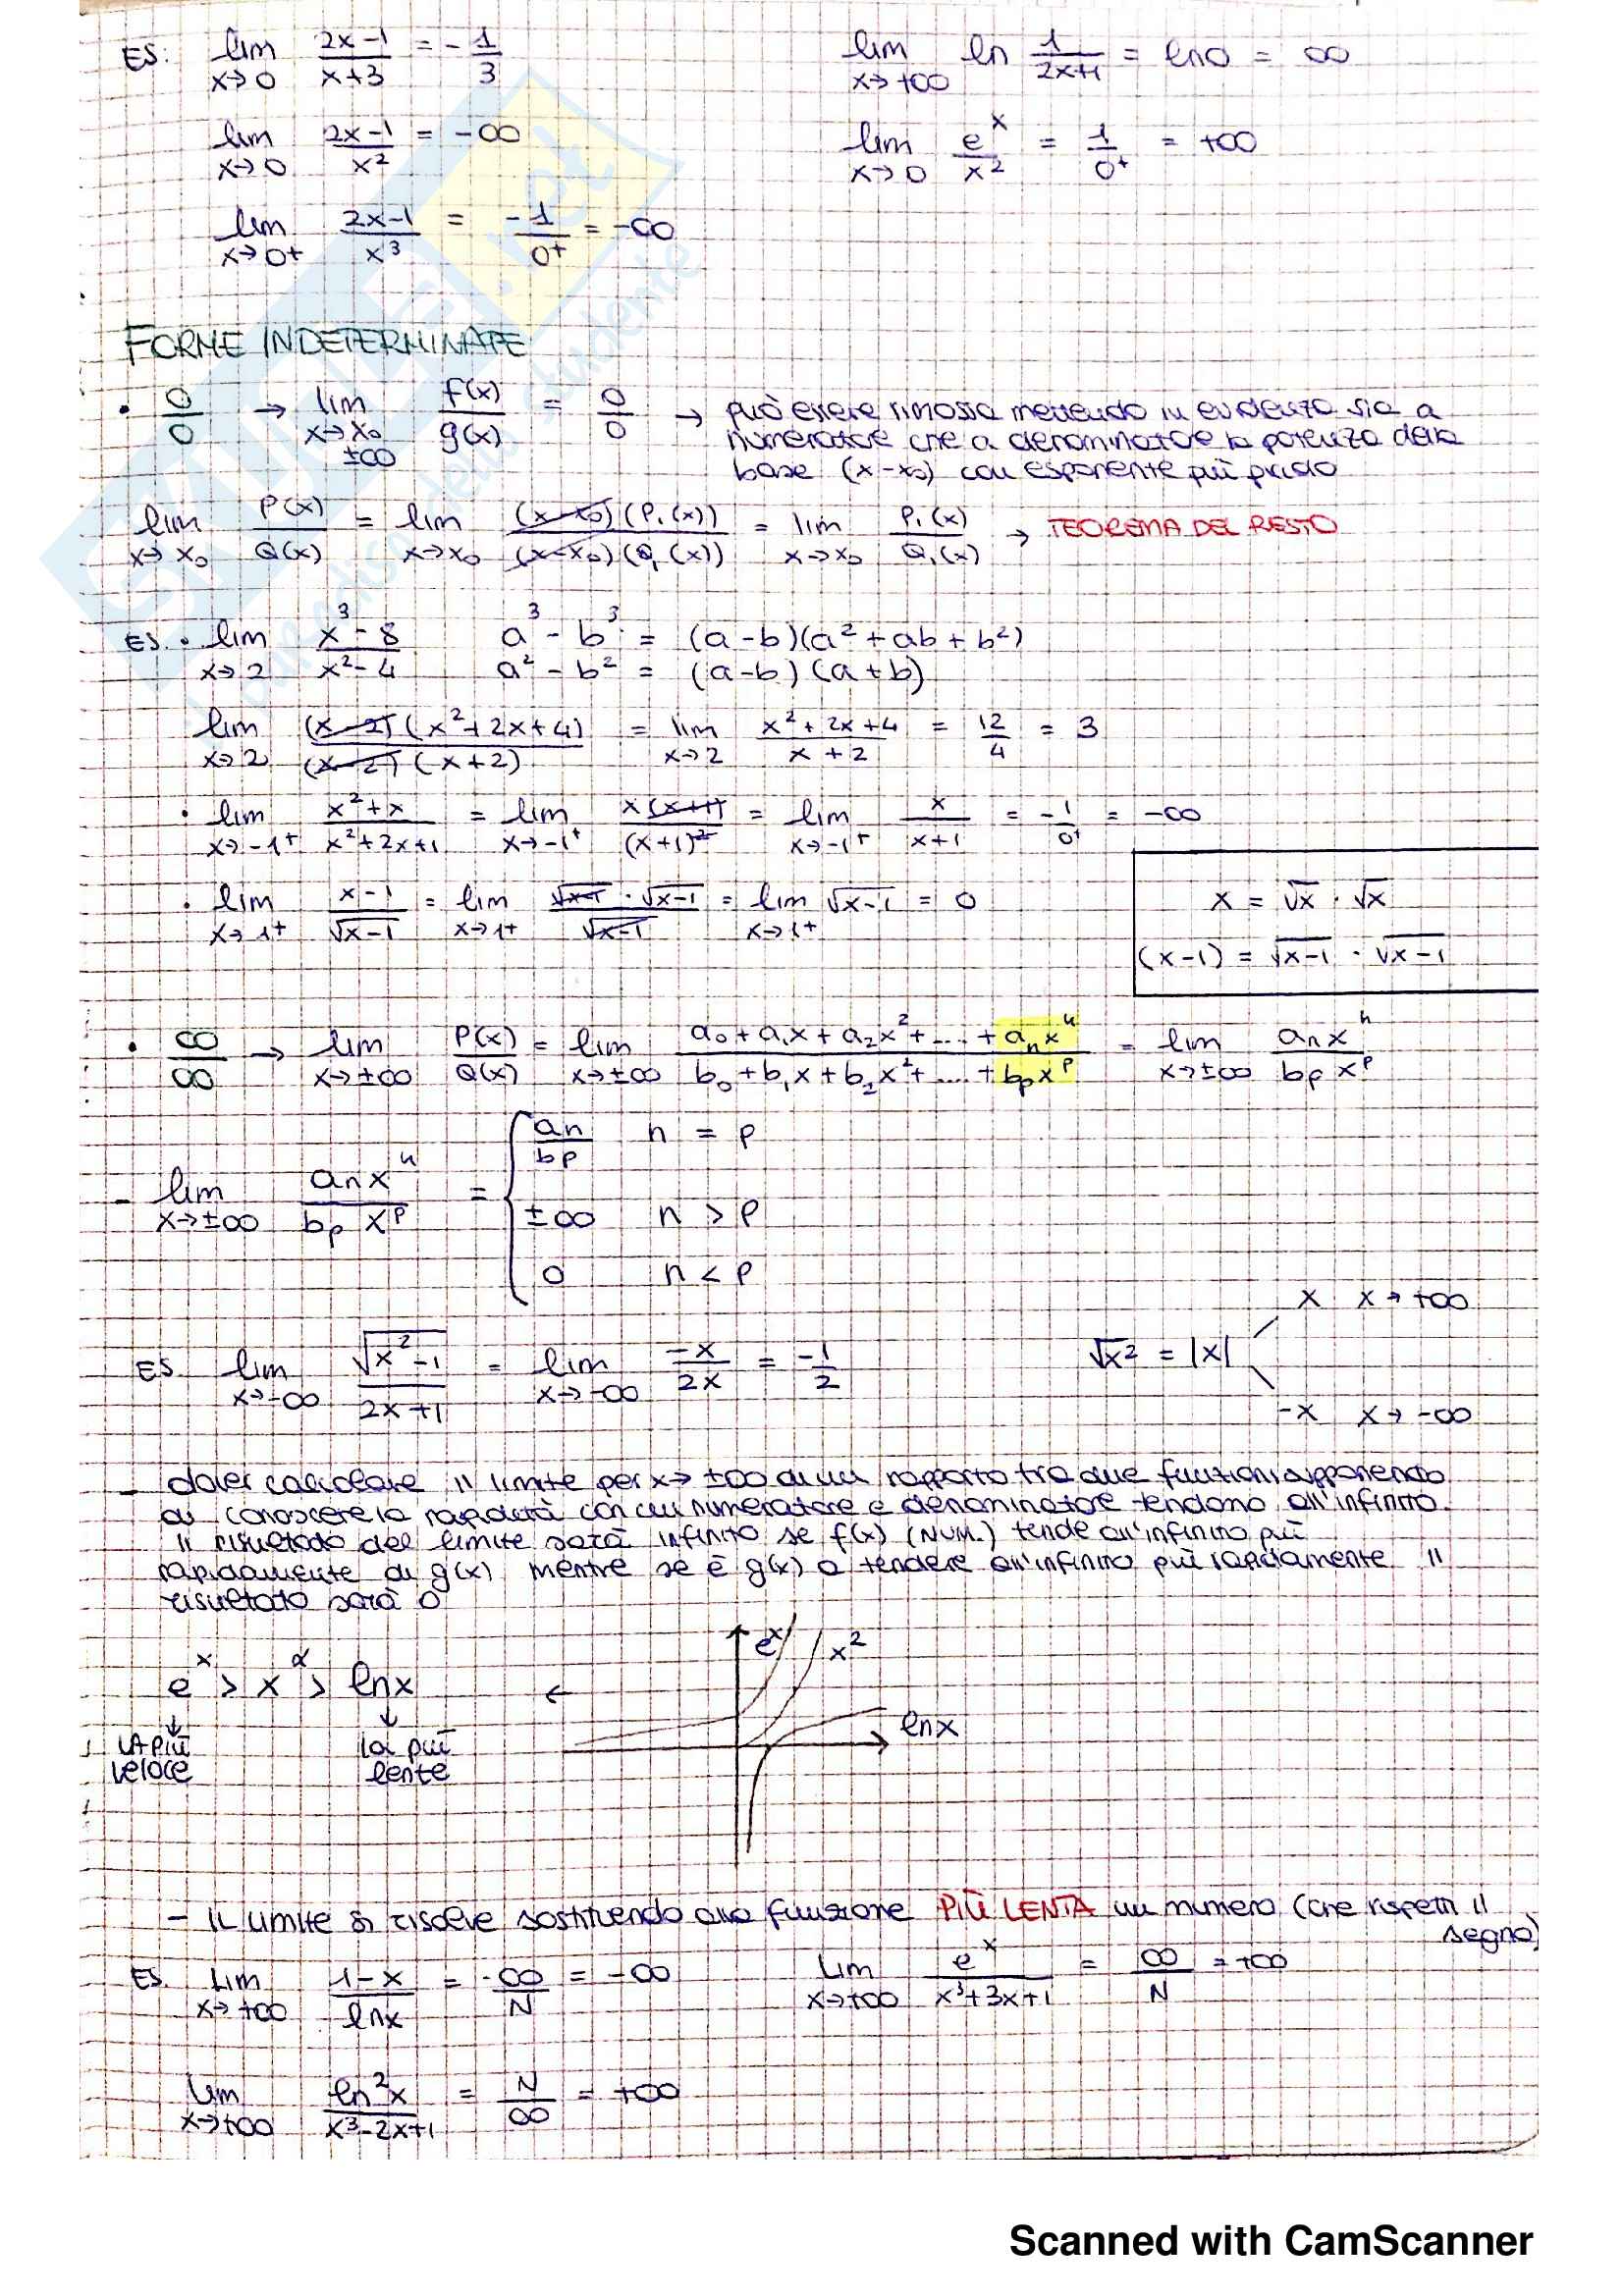 ES: lim x→0 (2x-1)/(x+3) = -1/3
lim x→+∞ ln 1/(2x+1) = ln0 = ∞
lim x→0 (2x-1)/x² = -∞
lim x→0 e^x/x² = 1/0⁺ = +∞
lim x→0⁺ (2x-1)/x³ = -1/0⁺ = -∞
FORME INDETERMINATE
• 0/0 → lim x→x₀ ±∞ f(x)/g(x) = 0/0 → può essere rimossa mettendo in evidenza sia a
numeratore che a denominatore la potenza della
base (x-x₀) con esponente più piccolo
lim x→x₀ P(x)/Q(x) = lim x→x₀ (x-x₀)(P₁(x))/(x-x₀)(Q₁(x)) = lim x→x₀ P₁(x)/Q₁(x) → TEOREMA DEL RESTO
ES. • lim x→2 (x³-8)/(x²-4) a³-b³ = (a-b)(a²+ab+b²)
a²-b² = (a-b)(a+b)
lim x→2 (x-2)(x²+2x+4)/(x-2)(x+2) = lim x→2 (x²+2x+4)/(x+2) = 12/4 = 3
• lim x→-1⁺ (x²+x)/(x²+2x+1) = lim x→-1⁺ x(x+1)/(x+1)² = lim x→-1⁺ x/(x+1) = -1/0⁺ = -∞
• lim x→1⁺ (x-1)/√(x-1) = lim x→1⁺ √(x-1)·√(x-1)/√(x-1) = lim x→1⁺ √(x-1) = 0
x = √x · √x
(x-1) = √(x-1) · √(x-1)
• ∞/∞ → lim x→±∞ P(x)/Q(x) = lim x→±∞ (a₀+a₁x+a₂x²+....+aₙxⁿ)/(b₀+b₁x+b₂x²+....+bₚxᵖ) = lim x→±∞ aₙxⁿ/bₚxᵖ
- lim x→±∞ aₙxⁿ/bₚxᵖ = { aₙ/bₚ n = p
±∞ n > p
0 n < p
ES lim x→-∞ √(x²-1)/(2x+1) = lim x→-∞ -x/2x = -1/2
√x² = |x|
x x→+∞
-x x→-∞
- dover calcolare il limite per x→±∞ di un rapporto tra due funzioni supponendo
di conoscere la rapidità con cui numeratore e denominatore tendono all'infinito.
Il risultato del limite sarà infinito se f(x) (NUM.) tende all'infinito più
rapidamente di g(x) mentre se è g(x) a tendere all'infinito più rapidamente il
risultato sarà 0
e^x > x^α > lnx ←
↓ LA PIÙ VELOCE
↓ la più lente
e^x
x²
lnx
- IL LIMITE si risolve sostituendo alla funzione PIÙ LENTA un numero (che rispetti il
segno)
ES. Lim x→+∞ (1-x)/lnx = -∞/N = -∞
Lim x→+∞ e^x/(x³+3x+1) = ∞/N = +∞
Lim x→+∞ ln²x/(x³-2x+1) = N/∞ = +∞
Scanned with CamScanner